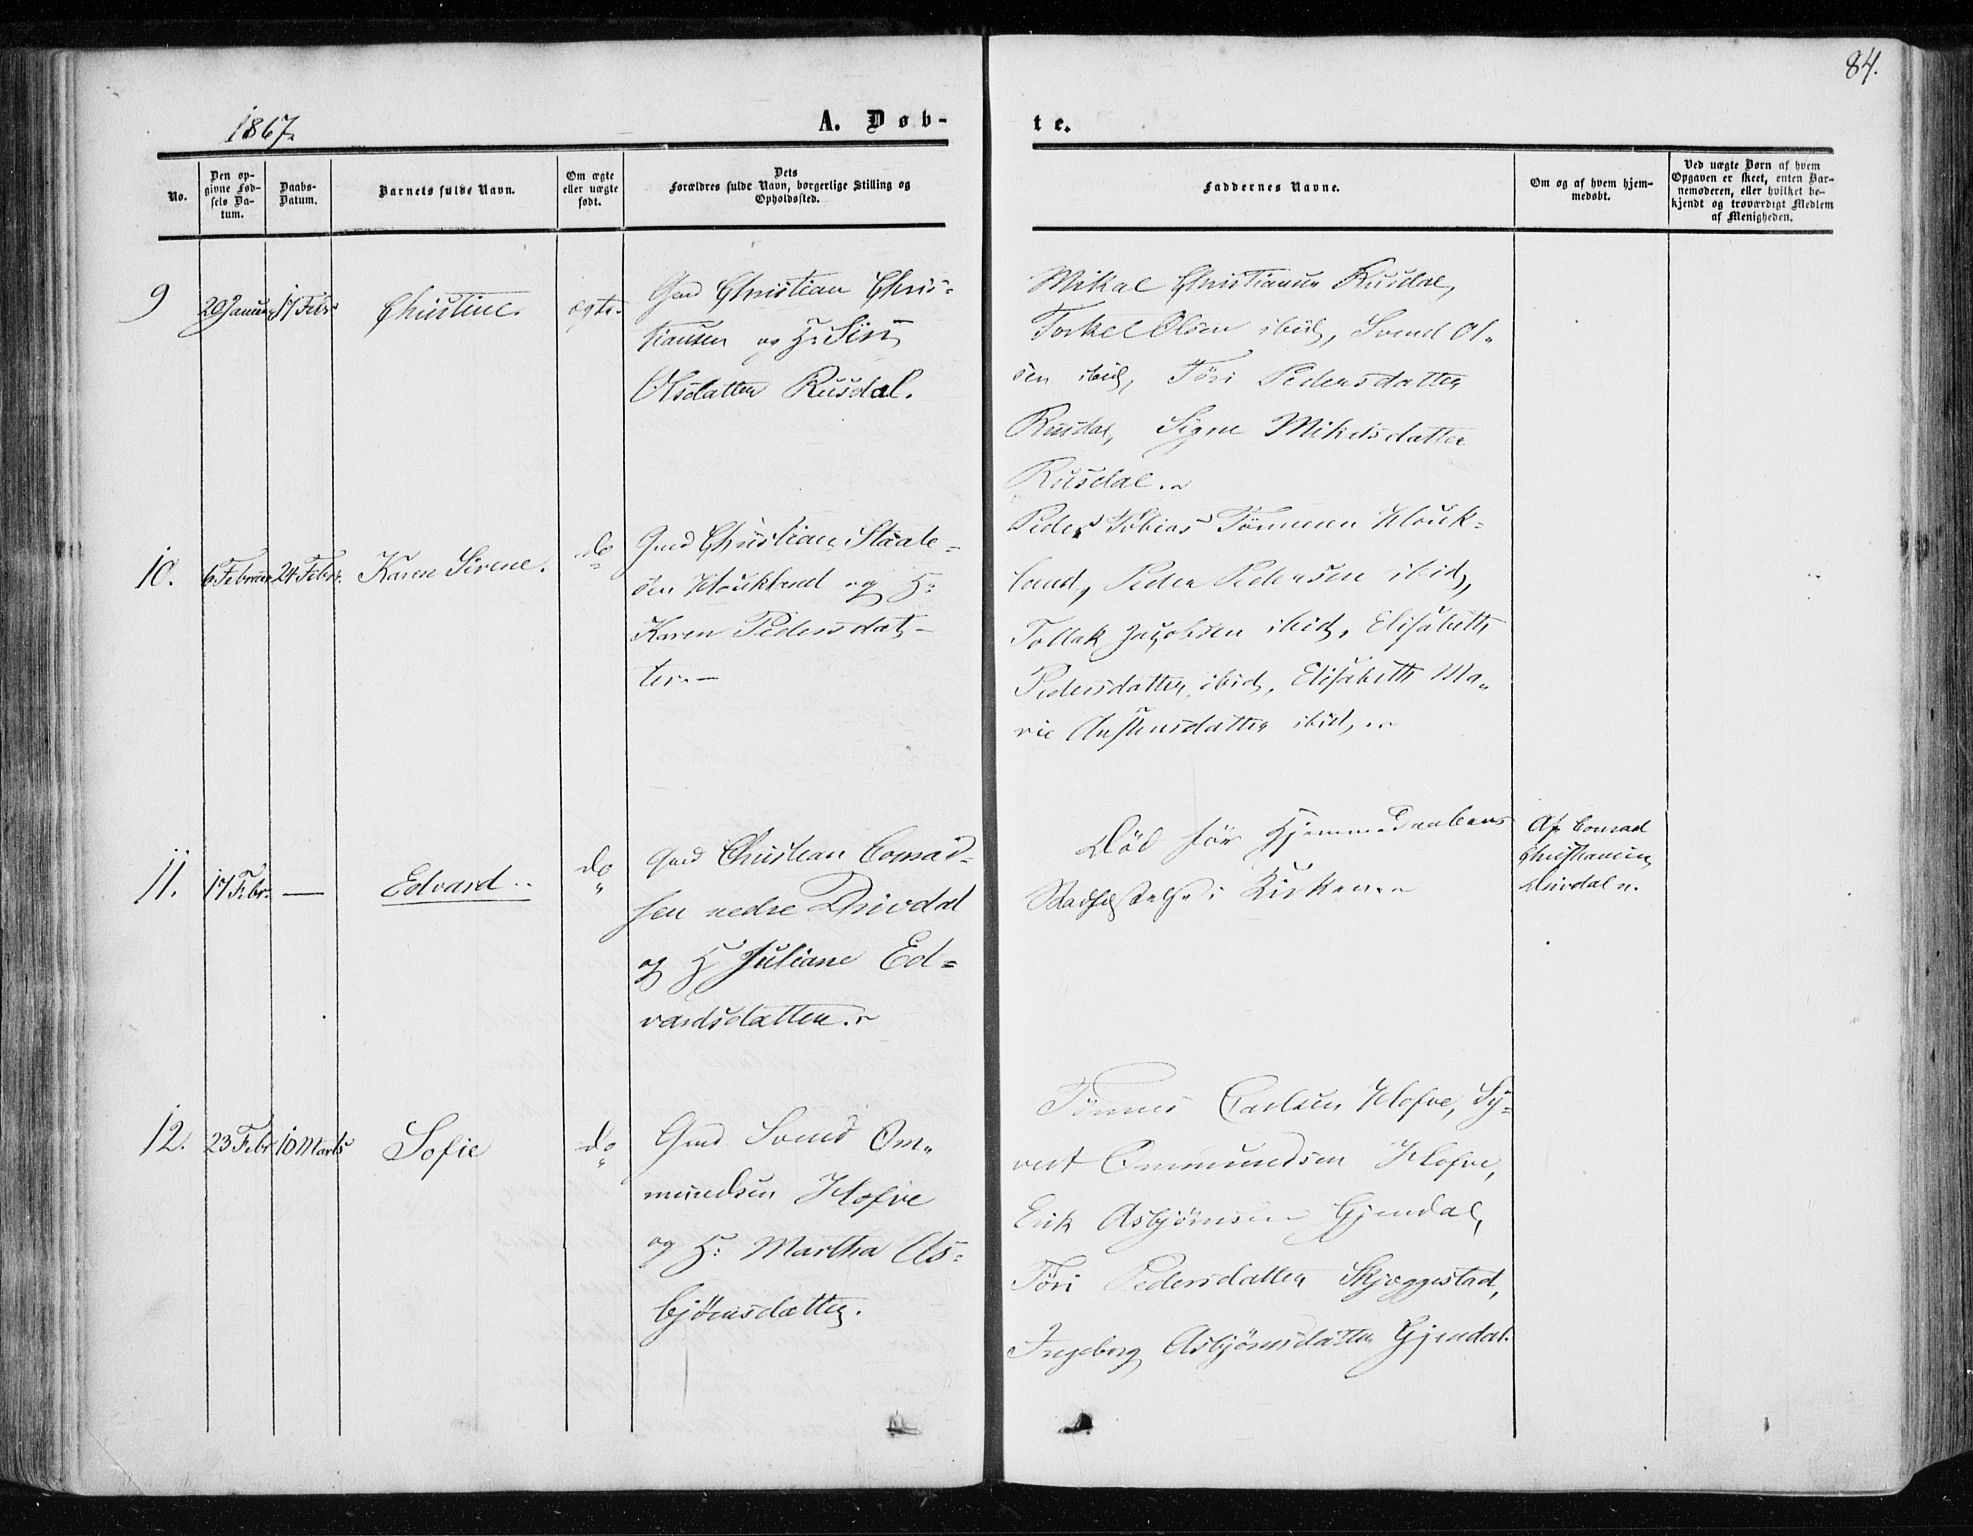 84.
1867.
A. Døb-
te.
No.
Den op-
givne Fød-
sels Da-
tum.
Daabs-
Datum.
Barnets fulde Navn.
Om ægte
eller uægte
født.
Dets
Forældres fulde Navn, borgerlige Stilling og
Opholdssted.
Faddernes Navne.
Om og af hvem hjem-
medøbt.
Ved uægte Børn af hvem
Opgaven er skeet, enten Bar-
nemoderen, eller hvilket be-
kjendt og troværdigt Medlem
af Menigheden.
9
20 Januar
17 Febr
Christine.
ægte.
Gmd Christian Chris-
tiansen og H: Siri
Olsdatter Rusdal.
Mikal Christiansen Rusdal,
Torkel Olsen ibid, Svend Ol-
sen ibid, Töri Pedersdatter
Rusdal, Signe Mikelsdatter
Rusdal.
10.
6 Februar
24 Febr.
Karen Sirene.
do
Gmd Christian Staale-
sen Houkland og H:
Karen Pedersdat-
ter.
Peder Tobias Tönnesen Houk-
land, Peder Pedersen ibid,
Tollak Jacobsen ibid, Elisabeth
Pedersdatter ibid, Elisabeth Ma-
rie ibid,
11.
17 Febr.
—
Edvard
do
Gmd Christian Conrad-
sen nedre Drivdal
og H Juliane Ed-
vardsdatter.
Död för Hjemmedaabens
Stadfæstelse i Kirken
Af Conrad
Christiansen
Drivdal
12.
23 Febr
10 Marts
Sofie
do
Gmd Svend Om-
mundsen Hofve
og H: Martha As-
björnsdatter.
Tönnes Carlsen Hofve, Sy-
vert Ommundsen Hofve,
Erik Asbjörnsen Gjendal,
Töri Pedersdatter Skjæggestad,
Ingeborg Asbjörnsdatter Gjendal.